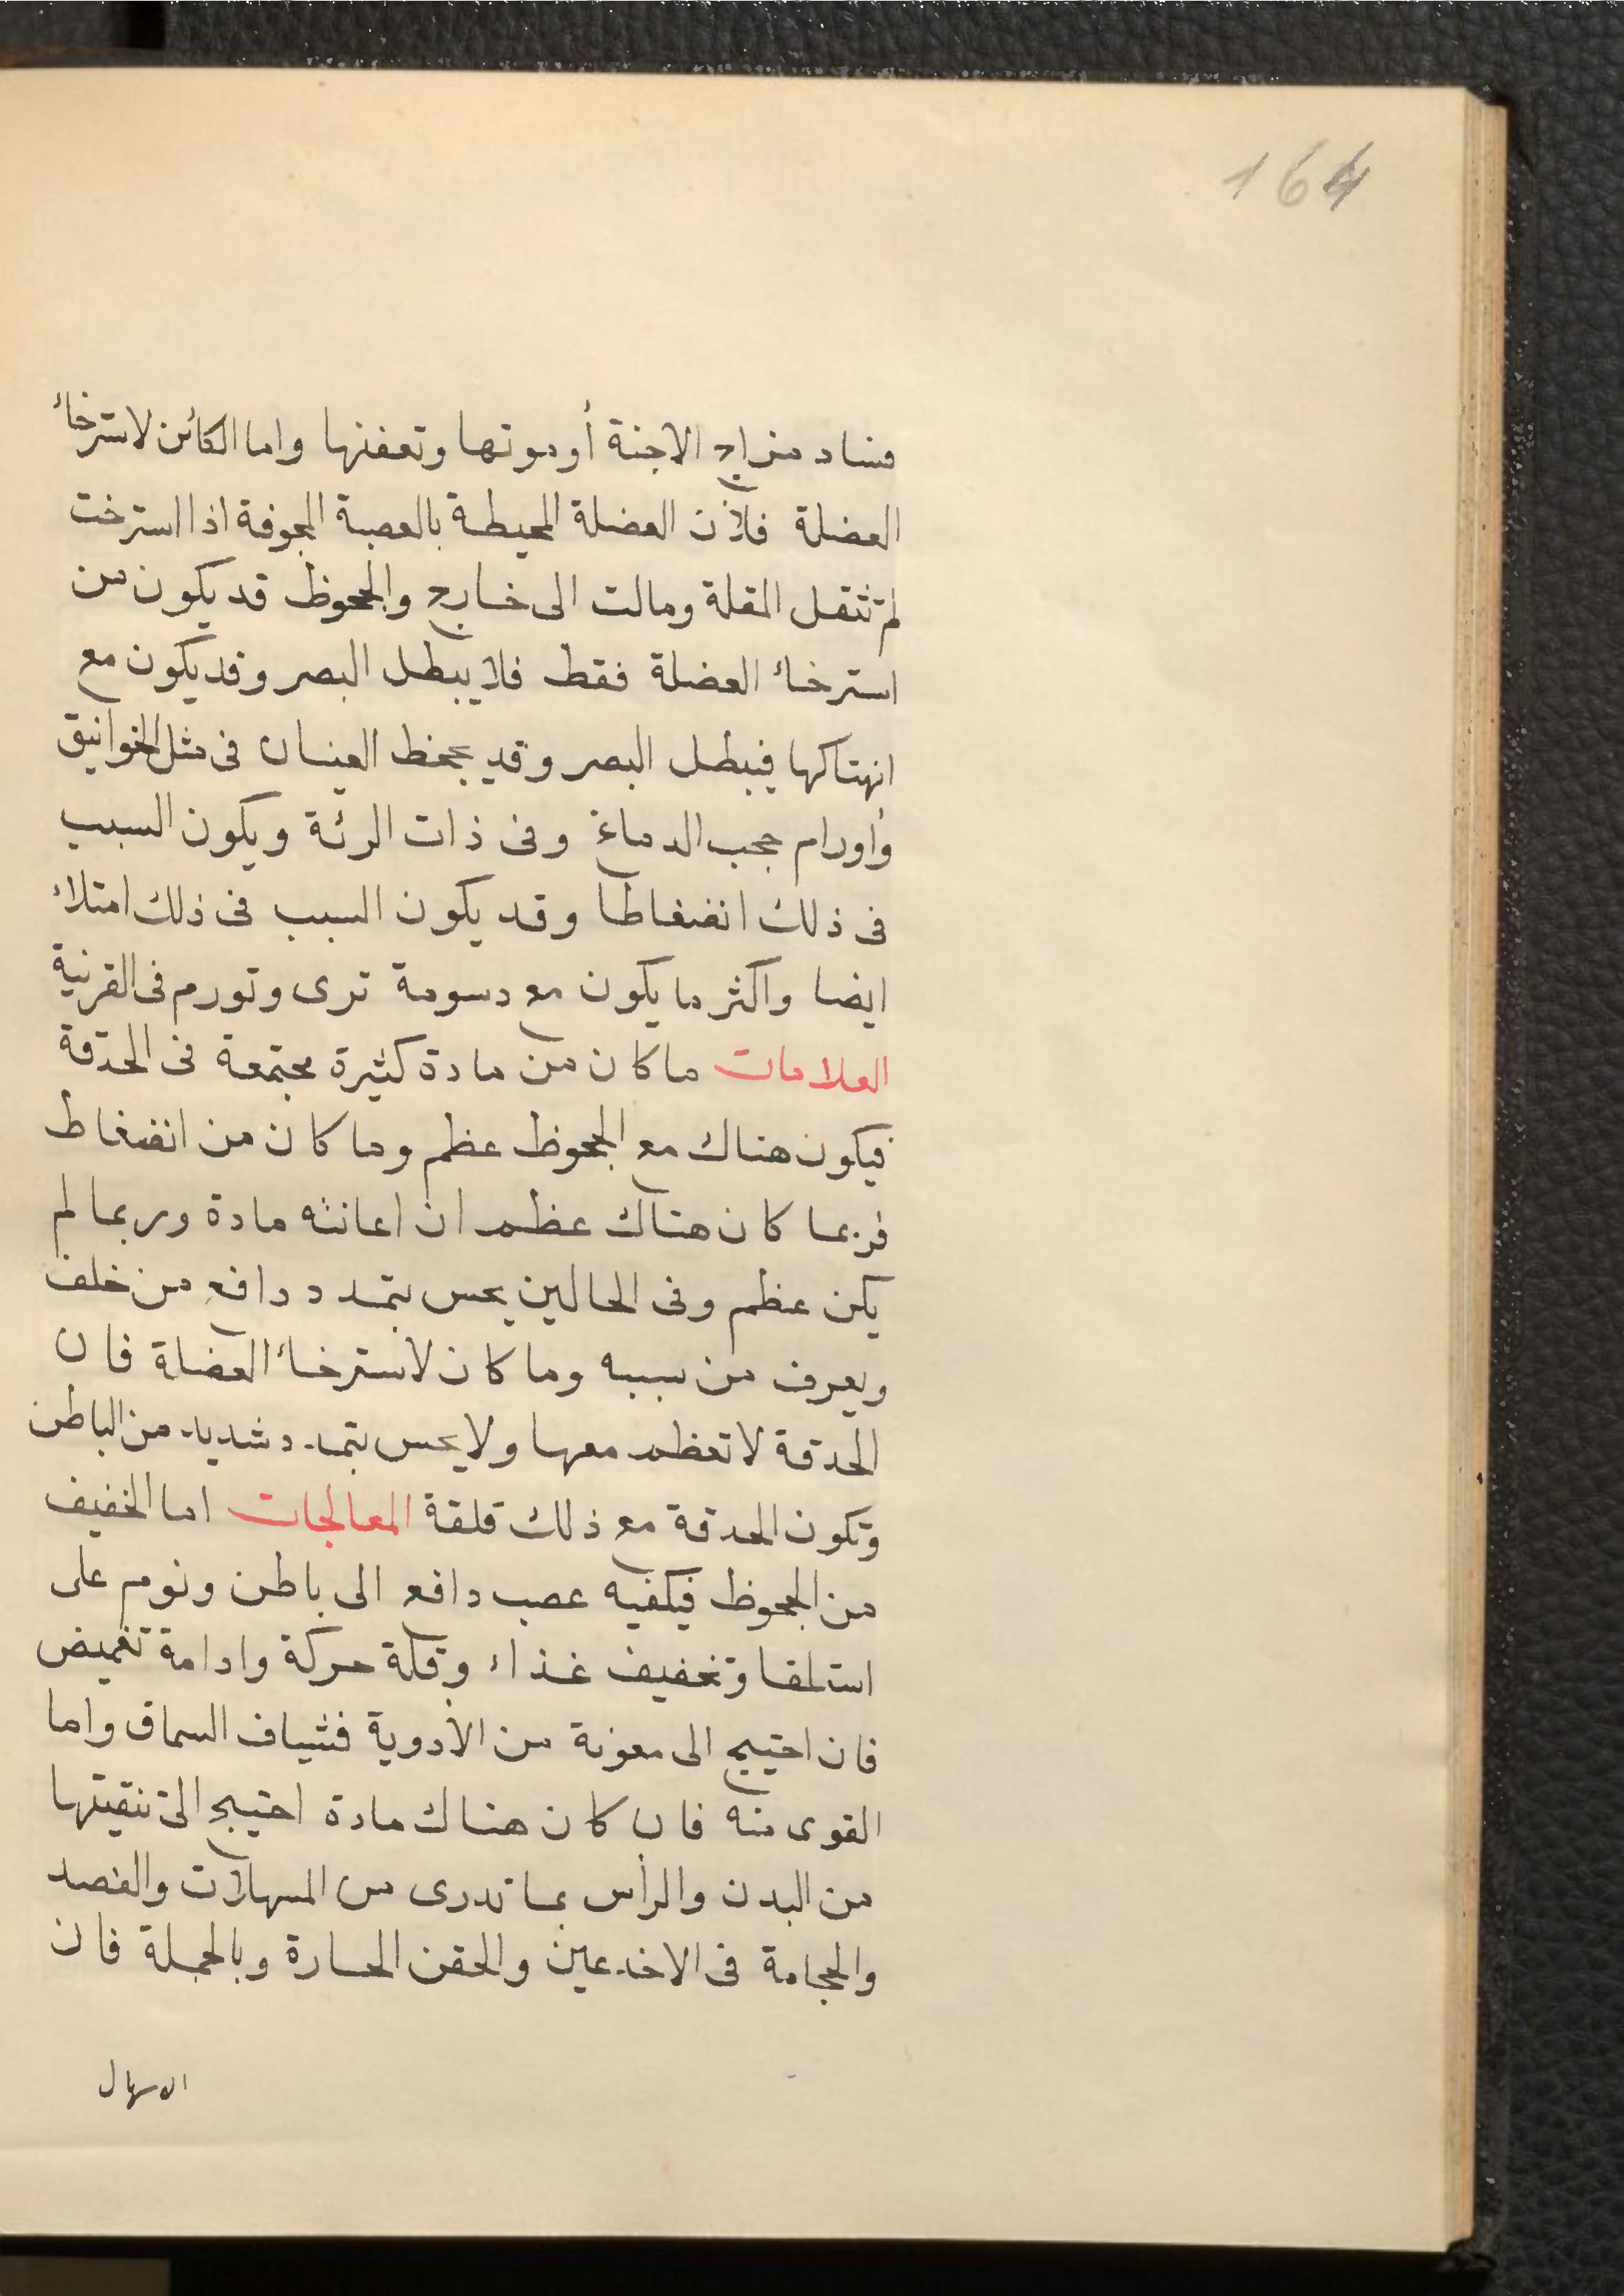 164
فساد مزاج الاجنة أو موتها وتعفنها واما الكائن لاسترخاء
العضلة فلأن العضلة المحيطة بالعصبة المجوفة اذا استرخت
لم تثقل المقلة ومالت الى خارج والجحوظ قد يكون من
استرخاء العضلة فقط فلا يبطل البصر وقد يكون مع
انهتاكها فيبطل البصر وقد يجحظ العينان فى مثل الخوانيق
وأورام حجب الدماغ وفى ذات الرئة ويكون السبب
فى ذلك انضغاطا وقد يكون السبب فى ذلك امتلاء
ايضا واكثر ما يكون مع دسومة ترى وتورم فى القرنية
العلامات ما كان من مادة كثيرة مجتمعة فى الحدقة
فيكون هناك مع الجحوظ عظم وما كان من انضغاط
فربما كان هناك عظم ان اعانته مادة وربما لم
يكن عظم وفى الحالين يحس بتمدد دافع من خلف
ويعرف من سببه وما كان لاسترخاء العضلة فان
الحدقة لا تعظم معها ولا يحس بتمدد شديد من الباطن
وتكون الحدقة مع ذلك قلقة المعالجات اما الخفيف
من الجحوظ فيكفيه عصب دافع الى باطن ونوم على
استلقا وتخفيف غذاء وقلة حركة وادامة تغميض
فان احتيج الى معونة من الأدوية فشياف السماق واما
القوى منه فان كان هناك مادة احتيج الى تنقيتها
من البدن والرأس بما تدرى من المسهلات والفصد
والحجامة فى الاخدعين والحقن الحارة وبالجملة فان
الاسهال